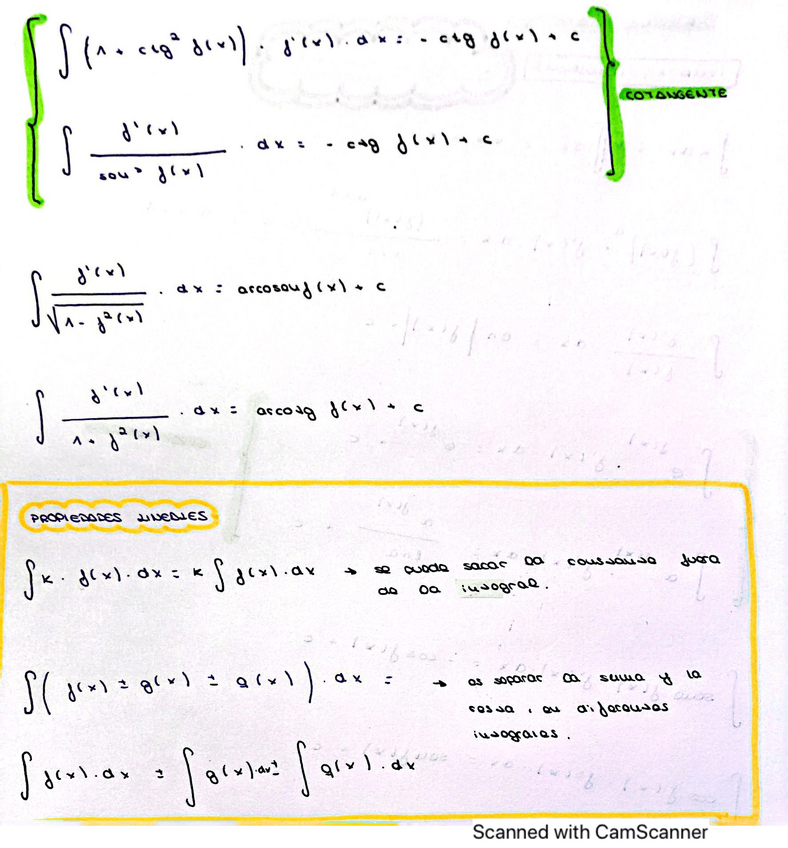 ∫ (1 + ctg² f(x)) · f'(x) · dx = - ctg f(x) + c
COTANGENTE
∫ f'(x) / sen² f(x) · dx = - ctg f(x) + c
∫ f'(x) / √(1 - f²(x)) · dx = arcosen f(x) + c
∫ f'(x) / (1 + f²(x)) · dx = arcotg f(x) + c
PROPIEDADES LINEALES
∫ k · f(x) · dx = k ∫ f(x) · dx → se puede sacar la constante fuera
de la integral.
∫ ( f(x) ± g(x) ± q(x) ) · dx = → es separar la suma y la
resta, en diferentes
integrales.
∫ f(x) · dx ± ∫ g(x) · dx ± ∫ q(x) · dx
Scanned with CamScanner